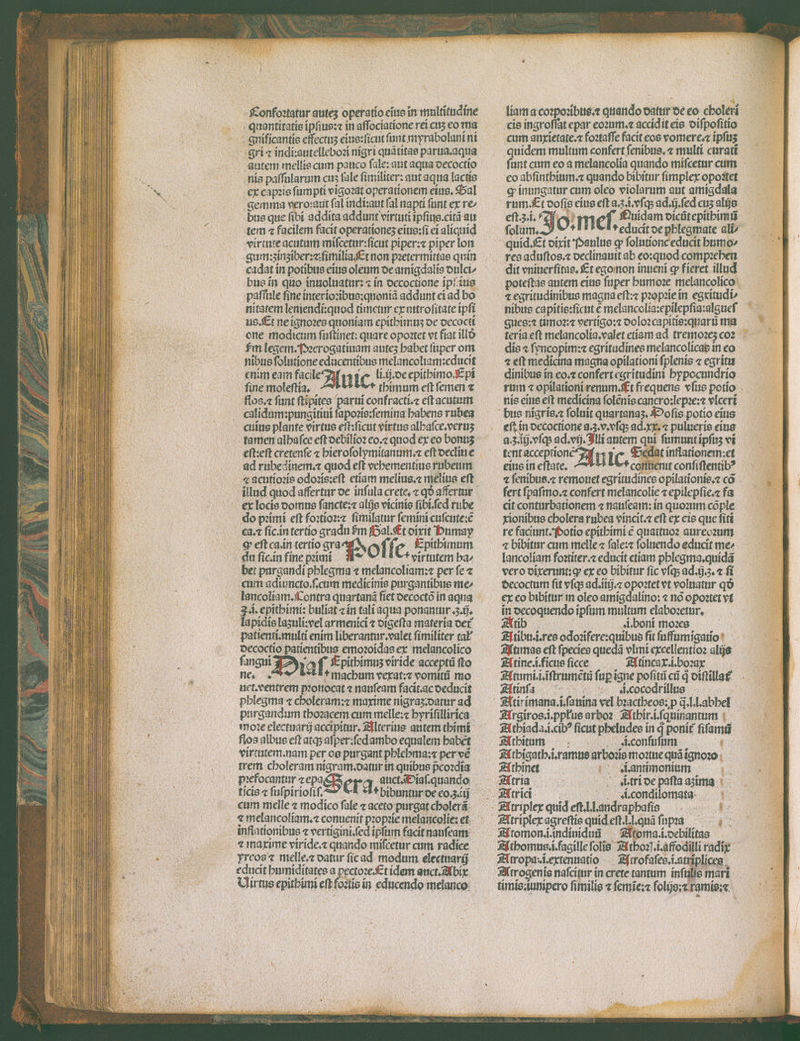 Confortatur autez operatio eius in multitudine
quantitatis ipsius:⁊ in associatione rei cuz eo ma
gnificantis effectuz eius:sicut sunt myrabolani ni
gri ⁊ indi:aut ellebori nigri quãtitas parua.aqua
autem mellis cum pauco sale: aut aqua decoctio
nis passularum cuz sale similiter: aut aqua lactis
ex capris sumpti vigorat operationem eius. Sal
gemma vero:aut sal indi:aut sal napti sunt ex re⸗
bus que sibi addita addunt virtuti ipsius.citã au
tem ⁊ facilem facit operationez eius:si ei aliquid
virtute acutum miscetur:sicut piper:⁊ piper lon
gum:zinziber:⁊ similia.Et non pretermittas quin
cadat in potibus eius oleum de amigdalis dulci⸗
bus in quo inuoluatur: ⁊ in decoctione ipsius
passule sine interioribus:quoniã addunt ei ad bo
nitatem leniendi:quod timetur ex nitrositate ipsi
us.Et ne ignores quoniam epithimuz de decocti
one modicum sustinet: quare oportet vt fiat illð
fm legem.Prerogatiuam autez habet super om
nibus solutione educentibus melancoliam:educit
enim eam facile⁊ Auic. li.ij.de epithimo.Epi
sine molestia. thimum est semen ⁊
flos.⁊ sunt stipites parui confracti.⁊ est acutum
calidum:pungitiui saporis:semina habens rubea
cuius plante virtus est:sicut virtus alhasce.veruz
tamen alhasce est debilior eo.⁊ quod ex eo bonuz
est:est cretense ⁊ hierosolymitanum.⁊ est decliue
ad rubedinem.⁊ quod est vehementius rubeum
⁊ acutioris odoris:est etiam melius.⁊ melius est
illud quod affertur de insula crete, ⁊ qð affertur
ex locis domus sancte:⁊ alijs vicinis sibi.sed rube
do primi est fortior:⁊ similatur semini cuscute:ẽ
ca.⁊ sic.in tertio gradu fm Gal.Et dixit Hunay
ꝙ est ca.in tertio gra⁊ Posse. Epithimum
du sic.in fine primi virtutem ha⸗
bet purgandi phlegma ⁊ melancoliam:⁊ per se ⁊
cum adiuncto.s.cum medicinis purgantibus me⸗
lancoliam.Contra quartanã fiet decoctõ in aqua
ʒ.i. epithimi: buliat ⁊ in tali aqua ponantur .ʒ.ij.
lapidis lazuli:vel armenici ⁊ digesta materia det᷑
patienti.multi enim liberantur.valet similiter tal᷑
decoctio patientibus emoroidas ex melancolico
sangui⁊ Dias. Epithimuz viride acceptũ sto
ne. machum vexat:⁊ vomitũ mo
uet.ventrem prouocat ⁊ nauseam facit.ac deducit
phlegma ⁊ choleram:⁊ maxime nigraz.datur ad
purgandum thoracem cum melle:⁊ hyrisillirica
more electuarij accipitur. Alterius autem thimi
flos albus est atqz asper:sed ambo equalem habẽt
virtutem.nam per os purgant phlebma:⁊ per vẽ
trem choleram nigram.datur in quibus pcordia
prefocantur ⁊ epa⁊ Sera. auct.Dias.quando
ticis ⁊ suspiriosis. bibuntur de eo.ʒ.iij
cum melle ⁊ modico sale ⁊ aceto purgat cholerã
⁊ melancoliam.⁊ conuenit proprie melancolie: et
inflationibus ⁊ vertigini.sed ipsum facit nauseam
⁊ maxime viride.⁊ quando miscetur cum radice
yreos ⁊ melle.⁊ datur sic ad modum electuarij
educit humiditates a pectore.Et idem auct.Abix
Uirtus epithimi est fortis in educendo melanco
liam a corporibus.⁊ quando datur de eo choleri
cis ingrossat epar eorum.⁊ accidit eis dispositio
cum anxietate.⁊ fortasse facit eos vomere.⁊ ipsuz
quidem multum confert senibus. ⁊ multi curati
sunt cum eo a melancolia quando miscetur cum
eo absinthium.⁊ quando bibitur simplex oportet
ꝙ inungatur cum oleo violarum aut amigdala
rum.Et dosis eius est a.ʒ.i.vsqz ad.ij.sed cuz alijs
est.ʒ.i. Jo.mes. Quidam dicũt epithimũ
solum. educit de phlegmate ali⸗
quid.Et dixit Paulus ꝙ solutione educit humo⸗
res adustos.⁊ declinauit ab eo:quod comprehen
dit vniuersitas.Et ego non inueni ꝙ fieret illud
potestas autem eius super humore melancolico
⁊ egritudinibus magna est:⁊ proprie in egritudi⸗
nibus capitis:sicut ẽ melancolia:epilepsia:algues
gues:⁊ timor:⁊ vertigo:⁊ dolor capitis:quarũ ma
teria est melancolia.valet etiam ad tremorez cor
dis ⁊ syncopim:⁊ egritudines melancolicas in eo
⁊ est medicina magna opilationi splenis ⁊ egritu
dinibus in eo.⁊ confert egritudini hypocundrio
rum ⁊ opilationi renum.Et frequens vsus potio
nis eius est medicina solẽnis cancro:lepre:⁊ vlceri
bus nigris.⁊ soluit quartanaz. Dosis potio eius
est in decoctione a.ʒ.v.vsqz ad.xx. ⁊ pulueris eius
a.ʒ.iij.vsqz ad.vij.Illi autem qui sumunt ipsuz vi
tent acceptionẽ⁊ Auic. Sedat inflationem:et
eius in estate. conuenit consistentibꝰ
⁊ senibus.⁊ remouet egritudines opilationis.⁊ cõ
fert spasmo.⁊ confert melancolie ⁊ epilepsie.⁊ fa
cit conturbationem ⁊ nauseam: in quorum cõple
xionibus cholera rubea vincit.⁊ est ex eis que siti
re faciunt.Potio epithimi ẽ quattuor aureorum
⁊ bibitur cum melle ⁊ sale:⁊ soluendo educit me⸗
lancoliam fortiter.⁊ educit etiam phlegma.quidã
vero dixerunt:ꝙ ex eo bibitur sic vsqz ad.ij.ʒ. ⁊ si
decoctum sit vsqz ad.iiij.⁊ oportet vt voluatur qð
ex eo bibitur in oleo amigdalino: ⁊ nõ oportet vt
in decoquendo ipsum multum elaboretur.
Atib .i.boni mores
Atibu.i.res odorifere:quibus fit suffumigatio
Atumas est species quedã vlmi excellentior alijs
Atine.i.ficus sicce Atincax.i.borax
Atumi.i.ĩstrumẽtũ sup igne positũ cũ q̃ distillat᷑
Atinsa .i.cocodrillus
Atirimana.i.sauina vel bractheos: p q̃.l.l.abhel
Argiros.i.pplus arbor Athir.i.squinantum
Athiada.i.cibꝰ sicut pheludes in q̃ ponit᷑ sisamũ
Athitum .i.consusum
Athigath.i.ramus arboris mortue quã ignoro
Athinet .i.antimonium
Atria .i.tri de pasta azima
Atrici .i.condilomata
Atriplex quid est.l.l.andraphasis
Atriplex agrestis quid est.l.l.quã supra
Atomon.i.indiuiduũ Atoma.i.debilitas
Athomus.i.fagille solis Athor].i.affodilli radix
Atropa.i.extenuatio Atrofases.i.atriplices
Atrogenis nascitur in crete tantum insulis mari
timis:iunipero similis ⁊ semie:⁊ folijs:⁊ ramis:⁊